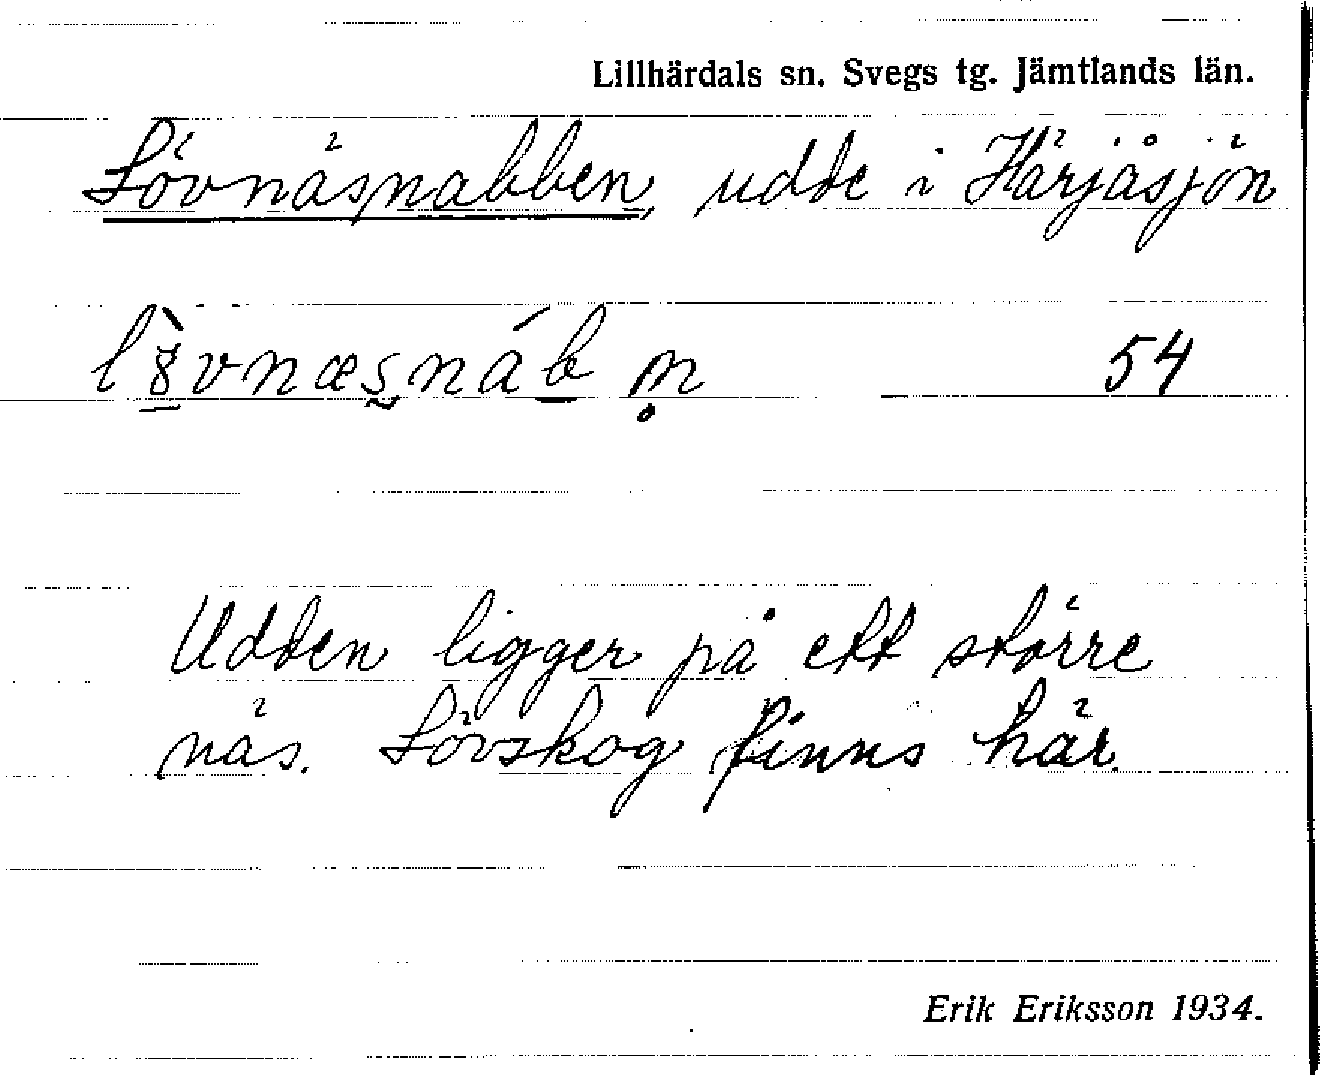 Lillhärdals sn. Svegs tg. Jämtlands län.
Lövnäsnabben, udde i Härjåsjön
l8̱̀vnæs̰náḇm̥ 54
Udden ligger på ett större
näs. Lövskog finns här.
Erik Eriksson 1934.